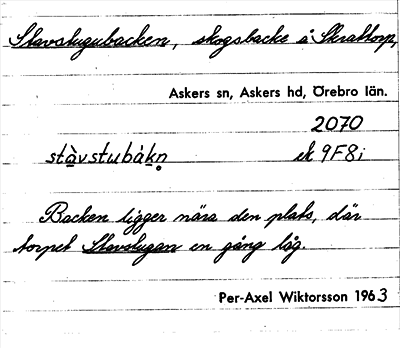 Stavstugubacken, skogsbacke å Skrattorp,
Askers sn, Askers hd, Örebro län.
2070
stàvstubàkn̥ ek 9F8i
Backen ligger nära den plats, där
torpet Stavstugan en gång låg.
Per-Axel Wiktorsson 1963